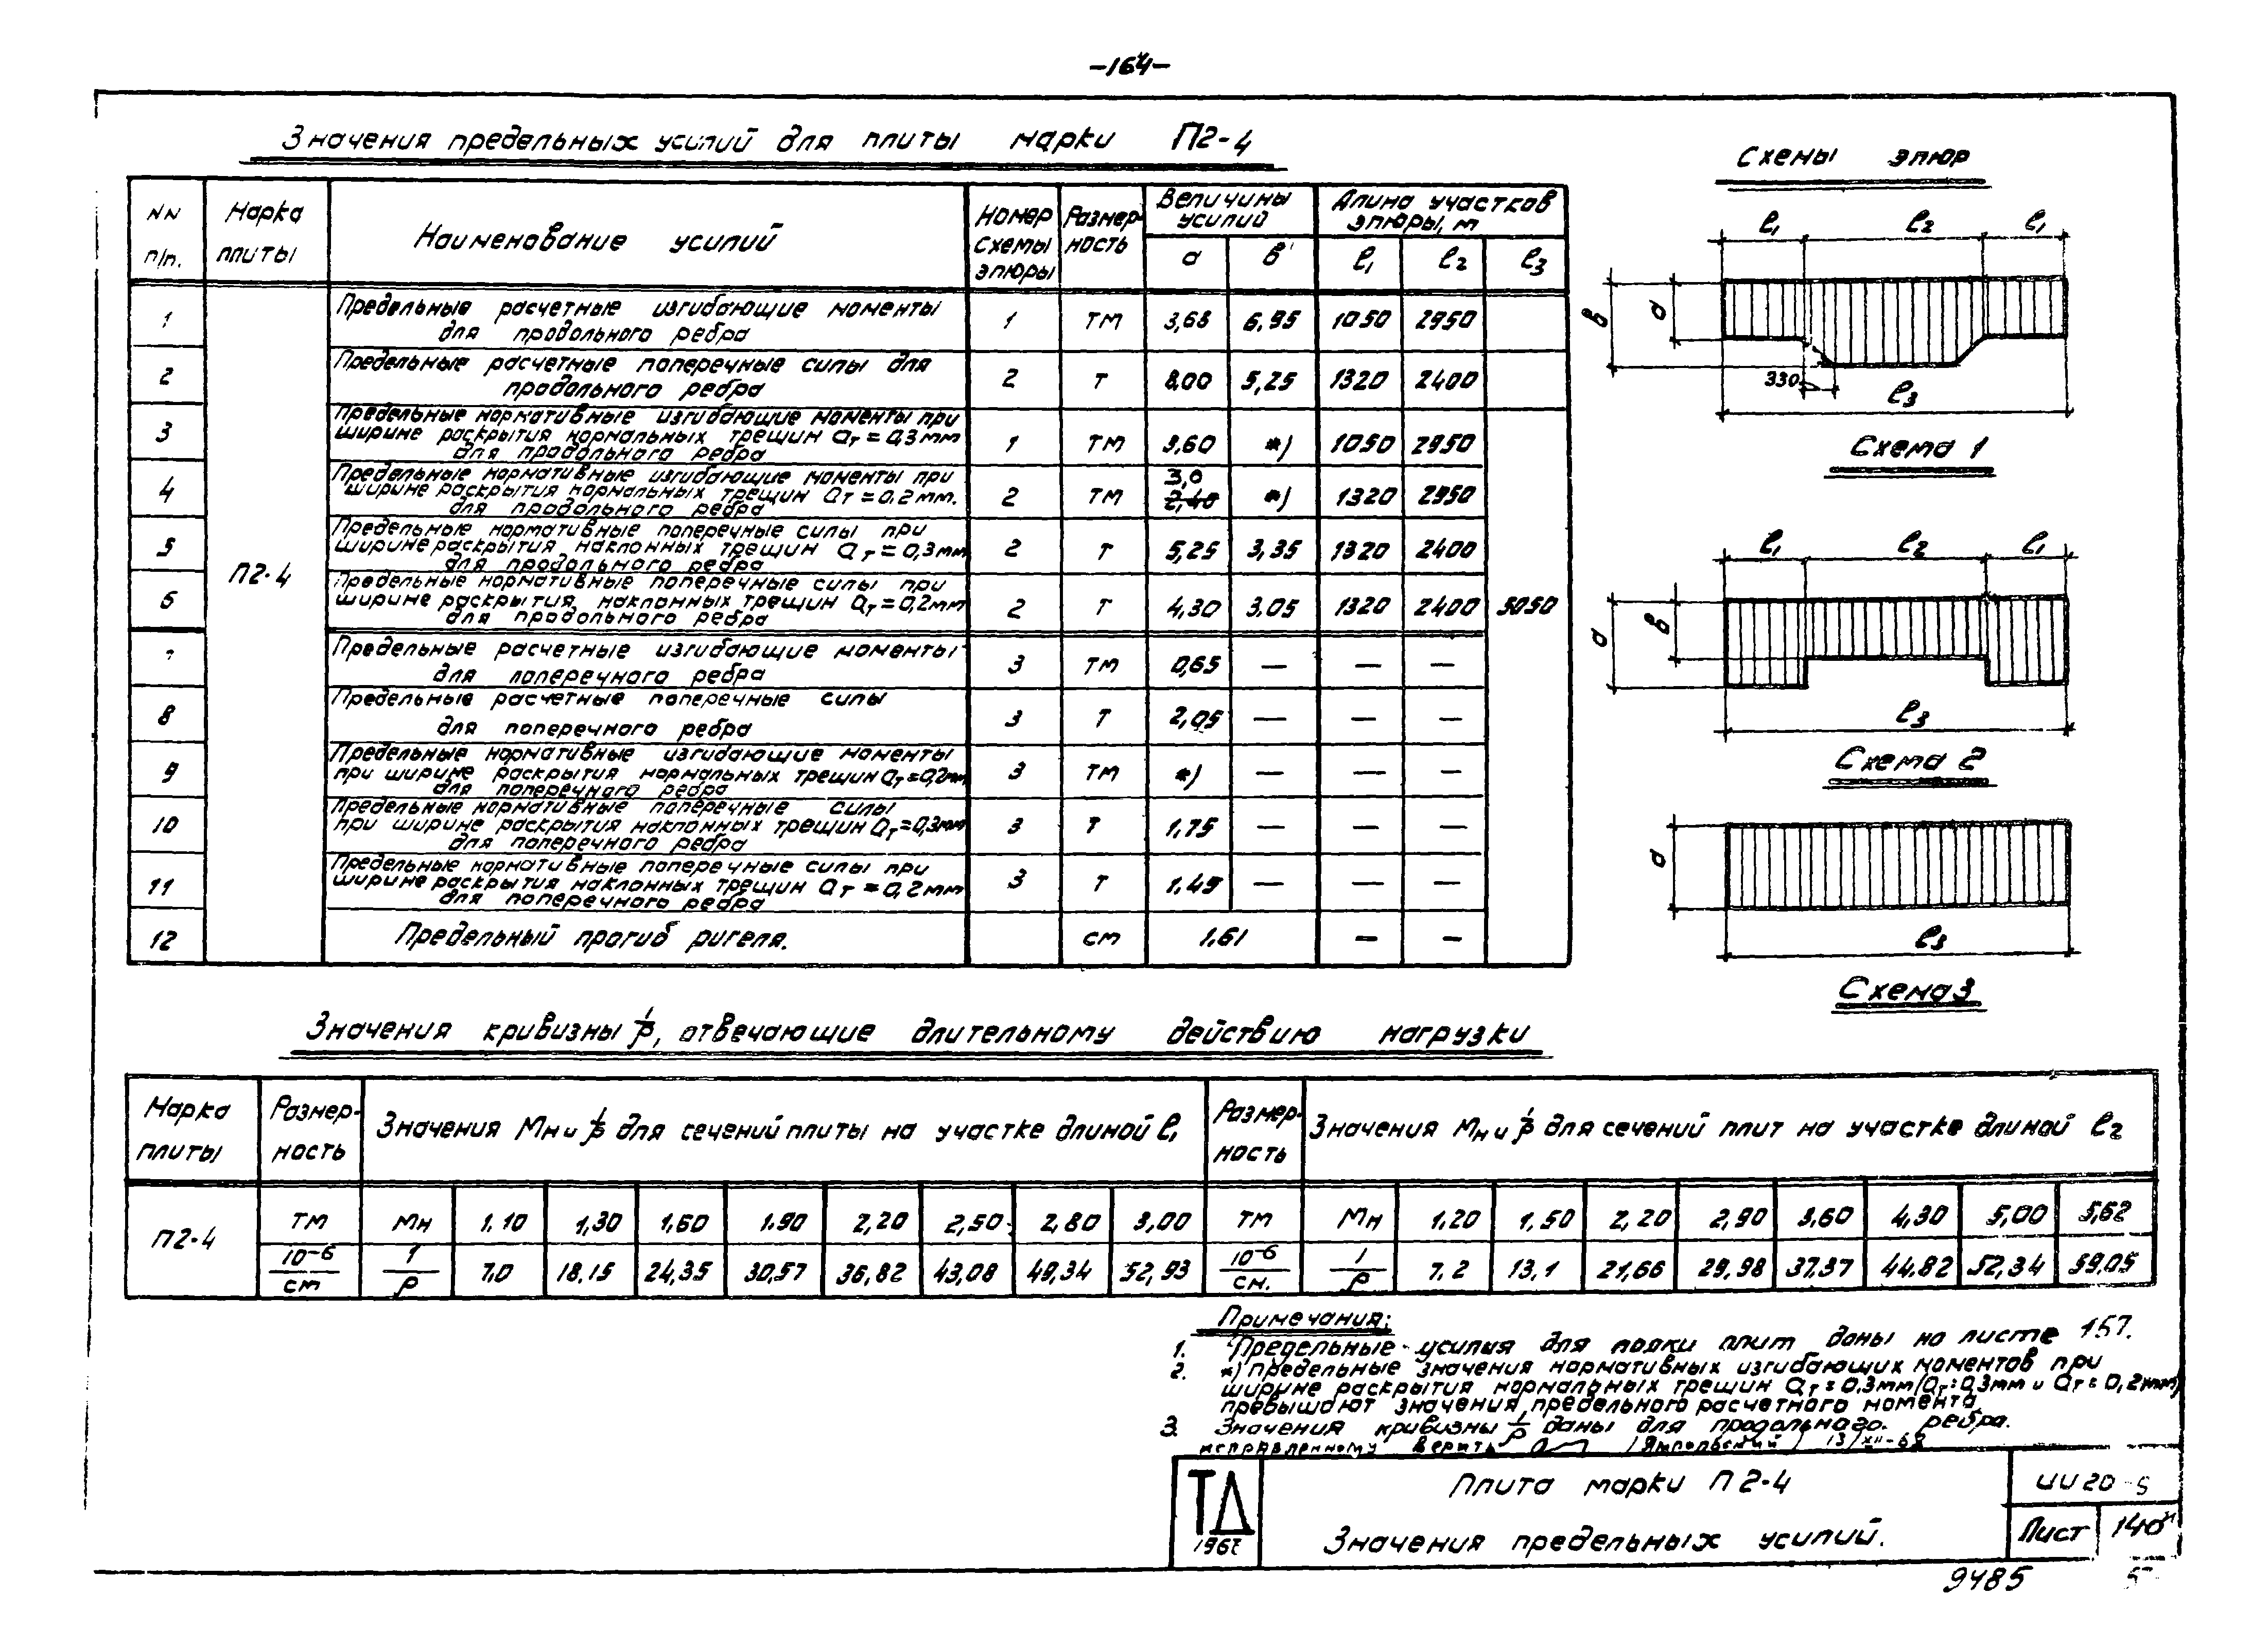 -164-
Значения предельных усилий для плиты марки П2-4
Схемы эпюр
NN п/п. | Марка плиты | Наименование усилий | Номер схемы эпюры | Размерность | Величины усилий | Длина участков эпюры, м
а | в | ℓ₁ | ℓ₂ | ℓ₃
П2-4
5050
1 | Предельные расчетные изгибающие моменты
для продольного ребра | 1 | тм | 3,68 | 6,95 | 1050 | 2950
2 | Предельные расчетные поперечные силы для
продольного ребра | 2 | т | 8,00 | 5,25 | 1320 | 2400
3 | Предельные нормативные изгибающие моменты при
ширине раскрытия нормальных трещин aт = 0,3мм
для продольного ребра | 1 | тм | 3,60 | *) | 1050 | 2950
4 | Предельные нормативные изгибающие моменты при
ширине раскрытия нормальных трещин aт = 0.2мм.
для продольного ребра | 2 | тм | 3,0 2,40 | *) | 1320 | 2950
5 | Предельные нормативные поперечные силы при
ширине раскрытия наклонных трещин aт = 0,3мм
для продольного ребра | 2 | т | 5,25 | 3,35 | 1320 | 2400
6 | Предельные нормативные поперечные силы при
ширине раскрытия наклонных трещин aт = 0,2мм
для продольного ребра | 2 | т | 4,30 | 3.05 | 1320 | 2400
Предельные расчетные изгибающие моменты
для поперечного ребра | 3 | тм | 0,65 | — | — | —
8 | Предельные расчетные поперечные силы
для поперечного ребра | 3 | т | 2,05 | — | — | —
9 | Предельные нормативные изгибающие моменты
при ширине раскрытия нормальных трещин aт=0,2мм
для поперечного ребра | 3 | тм | *) | — | — | —
10 | Предельные нормативные поперечные силы
при ширине раскрытия наклонных трещин aт=0,3мм
для поперечного ребра | 3 | т | 1,75 | — | — | —
11 | Предельные нормативные поперечные силы при
ширине раскрытия наклонных трещин aт = 0,2мм
для поперечного ребра | 3 | т | 1,45 | — | — | —
12 | Предельный прогиб ригеля. | см | 1,61 | — | —
ℓ₁ ℓ₂ ℓ₁
в а
330
ℓ₃
Схема 1
ℓ₁ ℓ₂ ℓ₁
а в
ℓ₃
Схема 2
а
ℓ₃
Схема 3
Значения кривизны 1/ρ, отвечающие длительному действию нагрузки
Марка плиты | Размерность | Значения Мн и 1/ρ для сечений плиты на участке длиной ℓ₁ | Размерность | Значения Мн и 1/ρ для сечений плит на участке длиной ℓ₂
П2-4 | тм | Мн | 1,10 | 1,30 | 1,60 | 1,90 | 2,20 | 2,50 | 2,80 | 3,00 | тм | Мн | 1,20 | 1,50 | 2,20 | 2,90 | 3,60 | 4,30 | 5,00 | 5,62
10⁻⁶/см | 1/ρ | 7,0 | 18,15 | 24,35 | 30,57 | 36,82 | 43,08 | 49,34 | 52,93 | 10⁻⁶/см. | 1/ρ | 7,2 | 13,1 | 21,66 | 29,98 | 37,37 | 44,82 | 52,34 | 59,05
Примечания:
1. Предельные усилия для полки плит даны на листе 157.
2. *) Предельные значения нормативных изгибающих моментов при
ширине раскрытия нормальных трещин aт = 0,3мм/aт=0,3мм и aт = 0,2мм)
превышают значения предельного расчетного момента
3. Значения кривизны 1/ρ даны для продольного ребра.
исправленному верить /Ямпольский/ 13/XII-68
ТД
Плита марки П2-4
Значения предельных усилий.
ИИ20-5
Лист 140
9485